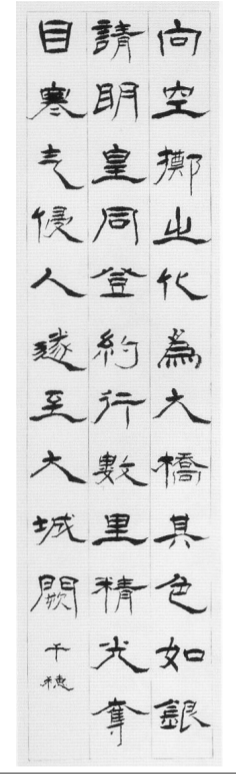 向空擲之化為大橋其色如銀
請明皇同登約行數里精光奪
目寒气侵人遂至大城闕
千穂